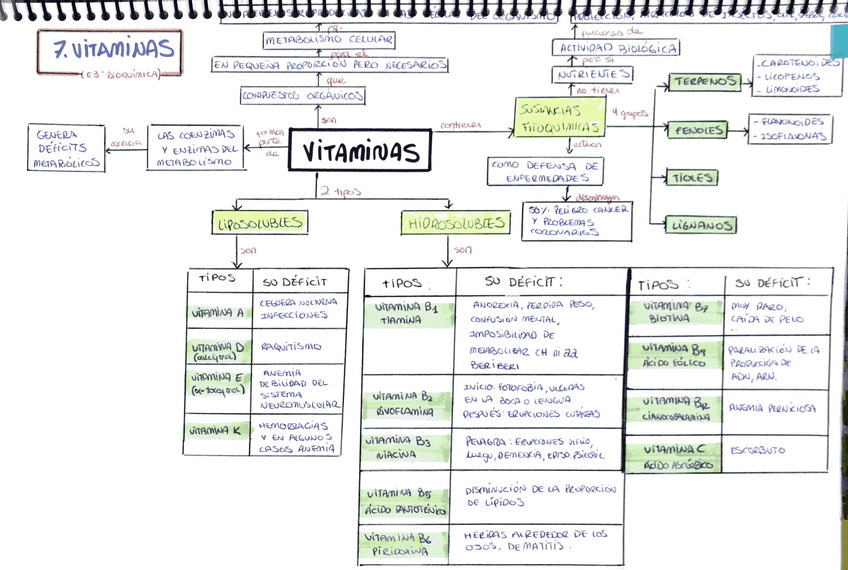 7. VITAMINAS
(E3: BIOQUÍMICA)
METABOLISMO CELULAR
para el
EN PEQUEÑA PROPORCIÓN PERO NECESARIOS
que
COMPUESTOS ORGÁNICOS
son
VITAMINAS
forman
parte
de
LAS COENZIMAS
Y ENZIMAS DEL
METABOLISMO
su
ausencia
GENERA
DÉFICITS
METABÓLICOS
contienen
SUSTANCIAS
FITOQUÍMICAS
no tienen
NUTRIENTES
pero si
ACTIVIDAD BIOLÓGICA
funciones de
4 grupos
TERPENOS
- CAROTENOIDES
- LICOPENOS
- LIMONOIDES
FENOLES
- FLAVONOIDES
- ISOFLAVONAS
TIOLES
LIGNANOS
actúan
COMO DEFENSA DE
ENFERMEDADES
disminuyen
50% PELIGRO CANCER
Y PROBLEMAS
CORONARIOS
2 tipos
LIPOSOLUBLES
son
HIDROSOLUBLES
son
TIPOS
SU DÉFICIT
VITAMINA A
CEGUERA NOCTURNA
INFECCIONES
VITAMINA D
(calciferol)
RAQUITISMO
VITAMINA E
(α-tocoferol)
ANEMIA
DEBILIDAD DEL
SISTEMA
NEUROMUSCULAR
VITAMINA K
HEMORRAGIAS
Y EN ALGUNOS
CASOS ANEMIA
TIPOS:
SU DÉFICIT:
VITAMINA B1
TIAMINA
ANOREXIA, PERDIDA PESO,
CONFUSIÓN MENTAL,
IMPOSIBILIDAD DE
METABOLIZAR CH ni aa
BERIBERI
VITAMINA B2
RIVOFLAMINA
INICIO: FOTOFOBIA, ULCERAS
EN LA BOCA O LENGUA
DESPUÉS: ERUPCIONES CUTÁNEAS
VITAMINA B3
NIACINA
PELAGRA: ERUPCIONES inicio,
Luego, DEMENCIA,
VITAMINA B5
ÁCIDO PANTOTÉNICO
DISMINUCIÓN DE LA PROPORCIÓN
DE LÍPIDOS
VITAMINA B6
PIRIDOXINA
HERIDAS ALREDEDOR DE LOS
OJOS, DEMATITIS.
TIPOS:
SU DÉFICIT:
VITAMINA B7
BIOTINA
MUY RARO,
CAÍDA DE PELO
VITAMINA B9
ÁCIDO FÓLICO
PARALIZACIÓN DE LA
PRODUCCIÓN DE
ADN, ARN.
VITAMINA B12
CIANOCOBALAMINA
ANEMIA PERNICIOSA
VITAMINA C
ÁCIDO ASCÓRBICO
ESCORBUTO